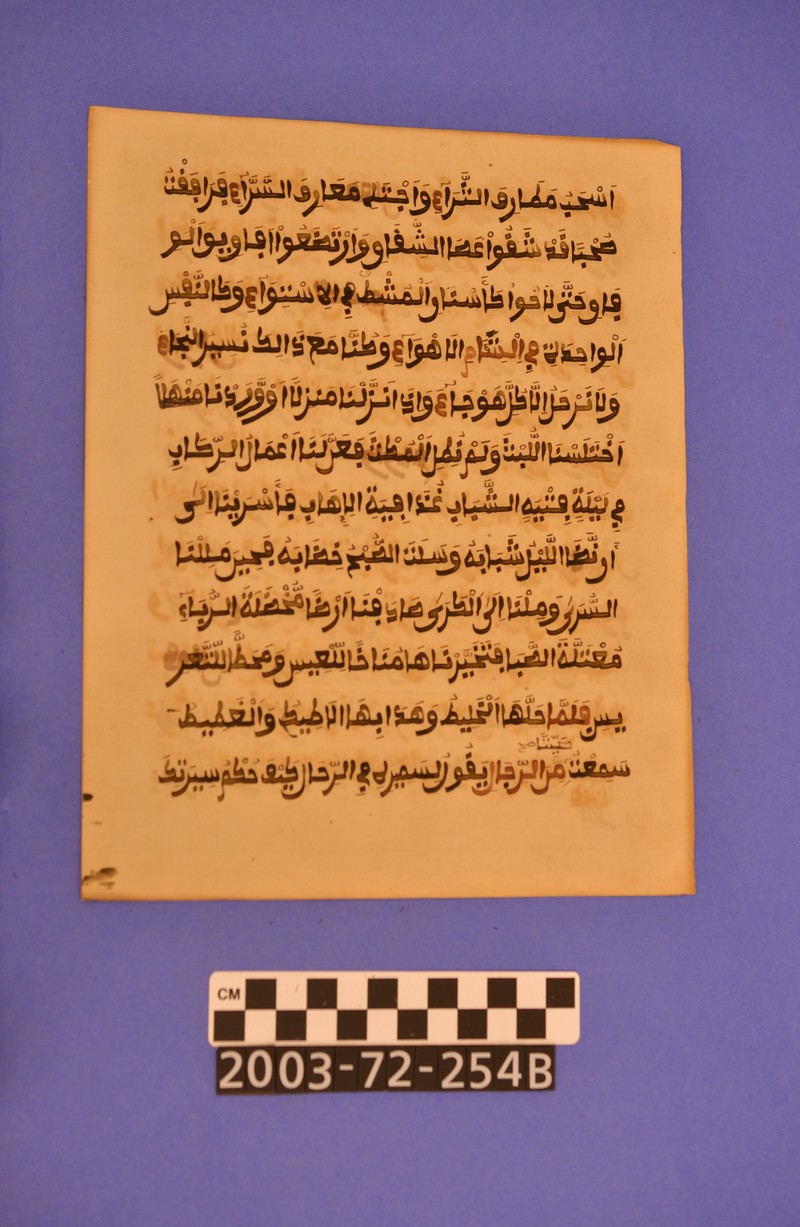 أَسْحَبُ مَطَارِفَ الثَّرَآءِ وَأَجْتَلِي مَعَارِفَ السَّرَّآءِ فَرَافَقْتُ
صَحْبًا قَدْ شَقُّواْ عَصَا الشِّقَاقِ وَارْتَضَعُواْ أَفَاوِيقَ الْوِ
فَاقِ حَتَّى لَاحُوا كَأَسْنَانِ الْمُشْطِ فِي الِاسْتِوَآءِ وَكَالنَّفْسِ
الْوَاحِدَةِ فِي الْتِئَامِ الَاهْوَآءِ وَكُنَّا مَعَ ذَالِكَ نَسِيرُ النَّجَاءَ
وَلَا نَرْحَلُ إِلَّا كُلَّ هَوْجَآءَ وَإِذَا نَزَلْنَا مَنْزِلًا أَوْ وَرَدْنَا مَنْهَلًا
اخْتَلَسْنَا اللُّبْثَ وَلَمْ نُطِلِ الْمُكْثَ فَعَنَّ لَنَا إِعْمَالُ الرِّكَابِ
فِي لَيْلَةٍ فَتِيَّةِ الشَّبَابِ غُدَافِيَّةِ الإِهَابِ فَأَسْرَيْنَا إِلَى
أَن نَضَا اللَّيْلُ شَبَابَهُ وَسَلَتَ الصُّبْحُ خِضَابَهُ فَحِينَ مَلِلْنَا
السُّرَى وَمِلْنَا إِلَى الْكَرَى صَادَفْنَا أَرْضًا مُخْضَلَّةَ الرُّبَاءِ
مُعْتَلَّةَ الصَّبَا فَتَخَيَّرْنَاهَا مُنَاخًا لِلْعِيسِ وَمَحَطًّا لِلتَّعْرِ
يسِ فَلَمَّا حَلَّهَا الْخَلِيطُ وَهَدَا بِهَا الَاطِيطُ وَالْغَطِيطُ
سَمِعْتُ صَيِّتًا مِنَ الرِّجَالِ يَقُولُ لِسَمِيرِهِ فِي الرِّحَالِ كَيْفَ حُكْمُ سِيرَتِكَ
CM
2003-72-254B